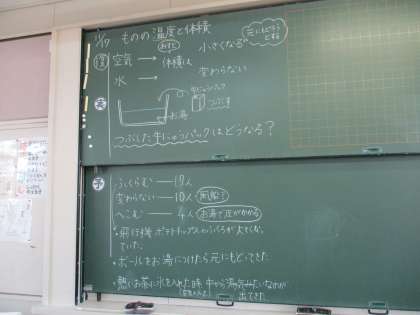 ものの温度と体積
復 空気 → 体積は 小さくなる
おすと
元にもどろうとする
水 → 変わらない
牛にゅうパック
つぶす
お湯
つぶした牛にゅうパックはどうなる？
予 ふくらむ ― 19人
変わらない ― 10人 風船？
へこむ ― 4人 お湯で圧がかかる
・飛行機 ポテトチップスのふくろが大きくなっていた。
・ボールをお湯につけたら元にもどってきた。
・熱いお茶に氷を入れた時、中から湯気みたいなのが
出てきた。